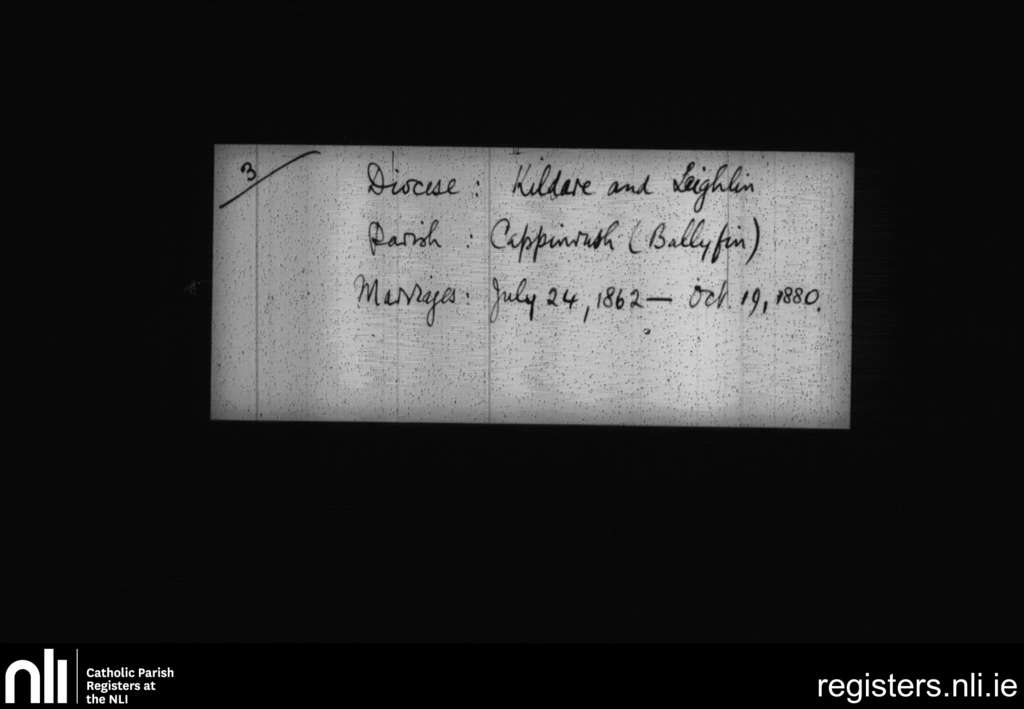 3
Diocese : Kildare and Leighlin
Parish : Cappinrush (Ballyfin)
Marriages: July 24, 1862 — Oct. 19, 1880.
nli
Catholic Parish
Registers at
the NLI
registers.nli.ie